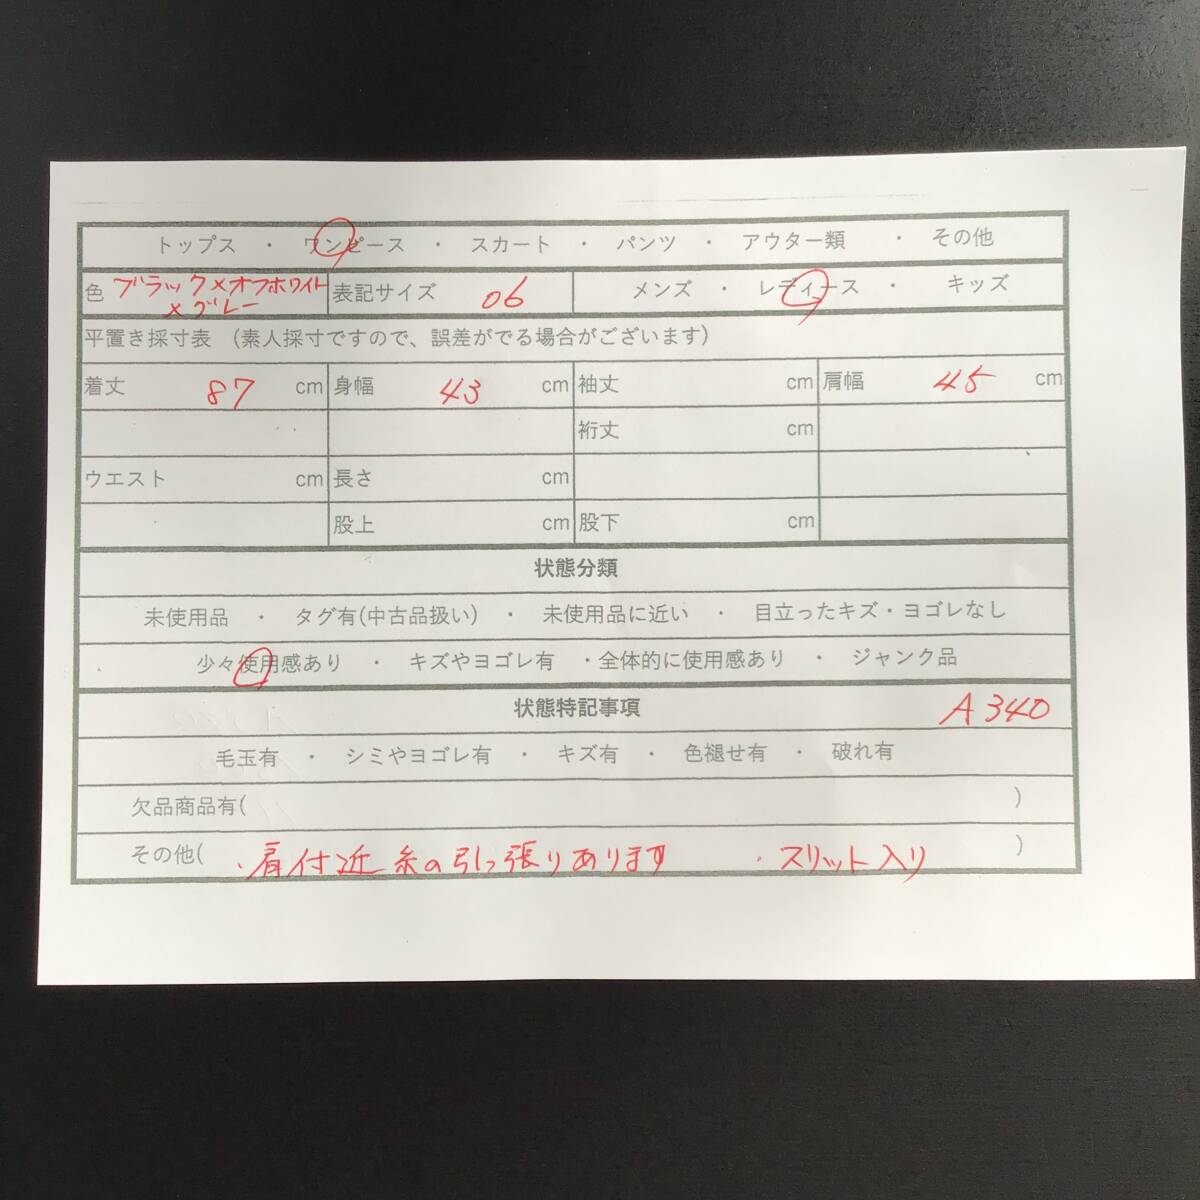 トップス ・ ワンピース ・ スカート ・ パンツ ・ アウター類 ・ その他
色 ブラック×オフホワイト 表記サイズ 06 メンズ ・ レディース ・ キッズ
×グレー
平置き採寸表 (素人採寸ですので、誤差がでる場合がございます)
着丈 87 cm 身幅 43 cm 袖丈 cm 肩幅 45 cm
裄丈 cm
ウエスト cm 長さ cm
股上 cm 股下 cm
状態分類
未使用品 ・ タグ有(中古品扱い) ・ 未使用品に近い ・ 目立ったキズ・ヨゴレなし
少々使用感あり ・ キズやヨゴレ有 ・全体的に使用感あり ・ ジャンク品
状態特記事項 A340
毛玉有 ・ シミやヨゴレ有 ・ キズ有 ・ 色褪せ有 ・ 破れ有
欠品商品有( )
その他( ・肩付近 糸の引っ張りあります ・スリット入り )